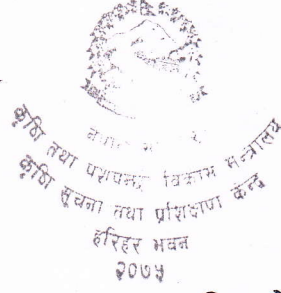 कृषि तथा पशुपन्छी विकास मन्त्रालय
कृषि सूचना तथा प्रशिक्षण केन्द्र
हरिहर भवन
२०७५